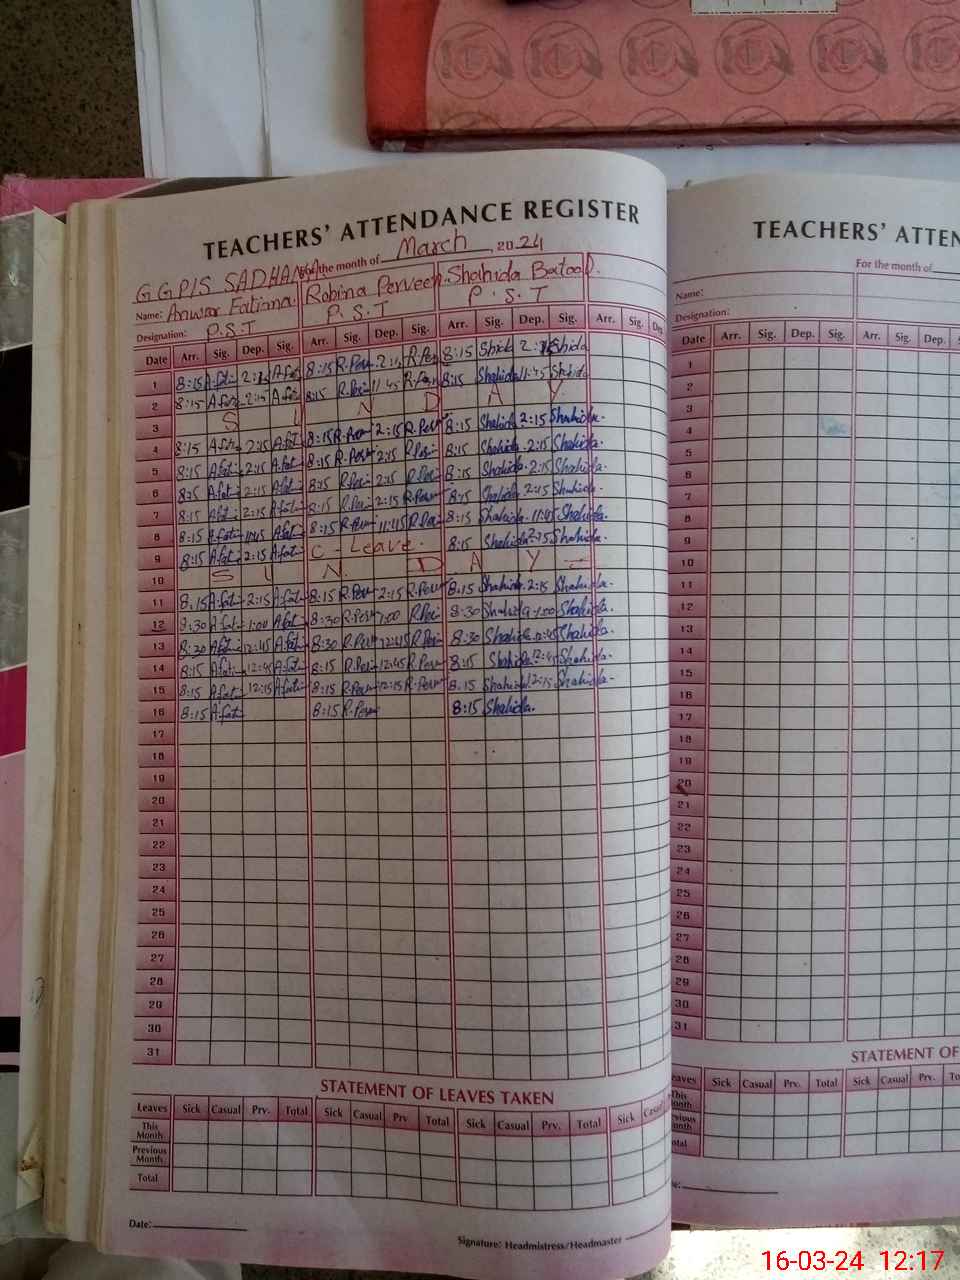 TEACHERS' ATTENDANCE REGISTER
GGPIS SADHANA For the month of March, 2024
Name: Anwar Fatima Robina Perveen Shahida Batool.
Designation: P.S.T P.S.T P.S.T
Date Arr. Sig. Dep. Sig. Arr. Sig. Dep. Sig. Arr. Sig. Dep. Sig. Arr. Sig. De
1 8:15 8:15 8:15
2 8:15 2:15 8:15 11:45 8:15 Shahida 11:45 Shahida
3 S U N D A Y
4 8:15 2:15 8:15 2:15 8:15 Shahida 2:15 Shahida.
5 8:15 A.fati 2:15 A.fati 8:15 2:15 8:15 Shahida. 2:15 Shahida.
6 8:15 A.fati 2:15 A.fati 8:15 2:15 8:15 Shahida. 2:15 Shahida.
7 8:15 A.fati 2:15 A.fati 8:15 2:15 8:15 Shahida. 2:15 Shahida.
8 8:15 A.fati 11:45 A.fati 8:15 11:45 8:15 Shahida. 11:45 Shahida.
9 8:15 A.fati 2:15 A.fati C - Leave. 8:15 Shahida 2:15 Shahida.
10 S U N D A Y
11 8:15 A.fati 2:15 A.fati 8:15 R.Perv 2:15 R.Perv 8:15 Shahida. 2:15 Shahida.
12 8:30 A.fati 1:00 A.fati 8:30 R.Perv 1:00 8:30 Shahida 1:00 Shahida.
13 8:30 A.fati 12:45 A.fati 8:30 R.Perv 12:45 8:30 Shahida. 12:45 Shahida.
14 8:15 A.fati 12:45 A.fati 8:15 12:45 R.Perv 8:15 Shahida. 12:45 Shahida.
15 8:15 A.fati 12:15 A.fati 8:15 R.Perv 12:15 R.Perv 8:15 Shahida. 12:15 Shahida.
16 8:15 A.fati 8:15 R.Perv 8:15 Shahida.
17
18
19
20
21
22
23
24
25
26
27
28
29
30
31
STATEMENT OF LEAVES TAKEN
Leaves Sick Casual Prv. Total Sick Casual Prv Total Sick Casual Prv. Total Sick Casual
This Month
Previous Month
Total
Date:
Signature: Headmistress/Headmaster
TEACHERS' ATTEN
For the month of
Name:
Designation:
Date Arr. Sig. Dep. Sig. Arr. Sig. Dep.
1
2
3
4
5
6
7
8
9
10
11
12
13
14
15
16
17
18
19
20
21
22
23
24
25
26
27
28
29
30
31
STATEMENT OF
eaves Sick Casual Prv. Total Sick Casual Prv. To
This
onth
vious
onth
otal
16-03-24 12:17